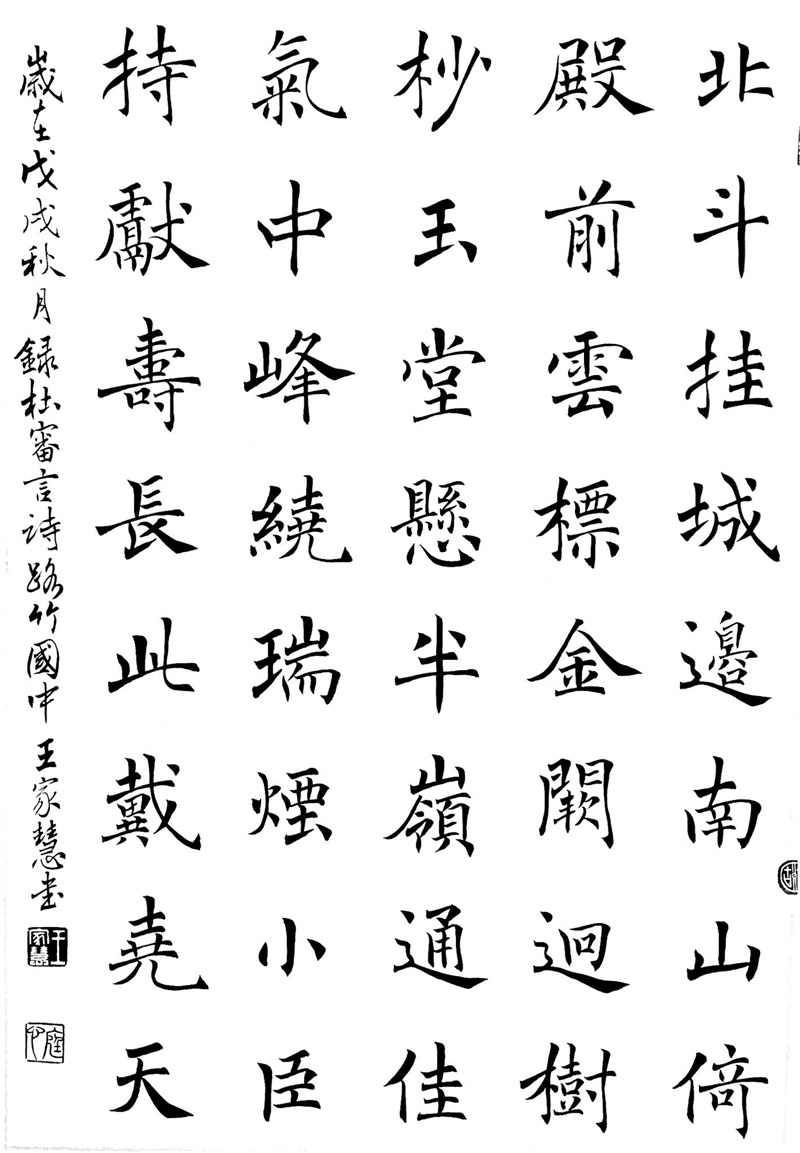 北斗挂城邊南山倚
殿前雲標金闕迥樹
杪玉堂懸半嶺通佳
氣中峰繞瑞煙小臣
持獻壽長此戴堯天
歲在戊戌秋月錄杜審言詩路竹國中王家慧書
王家慧